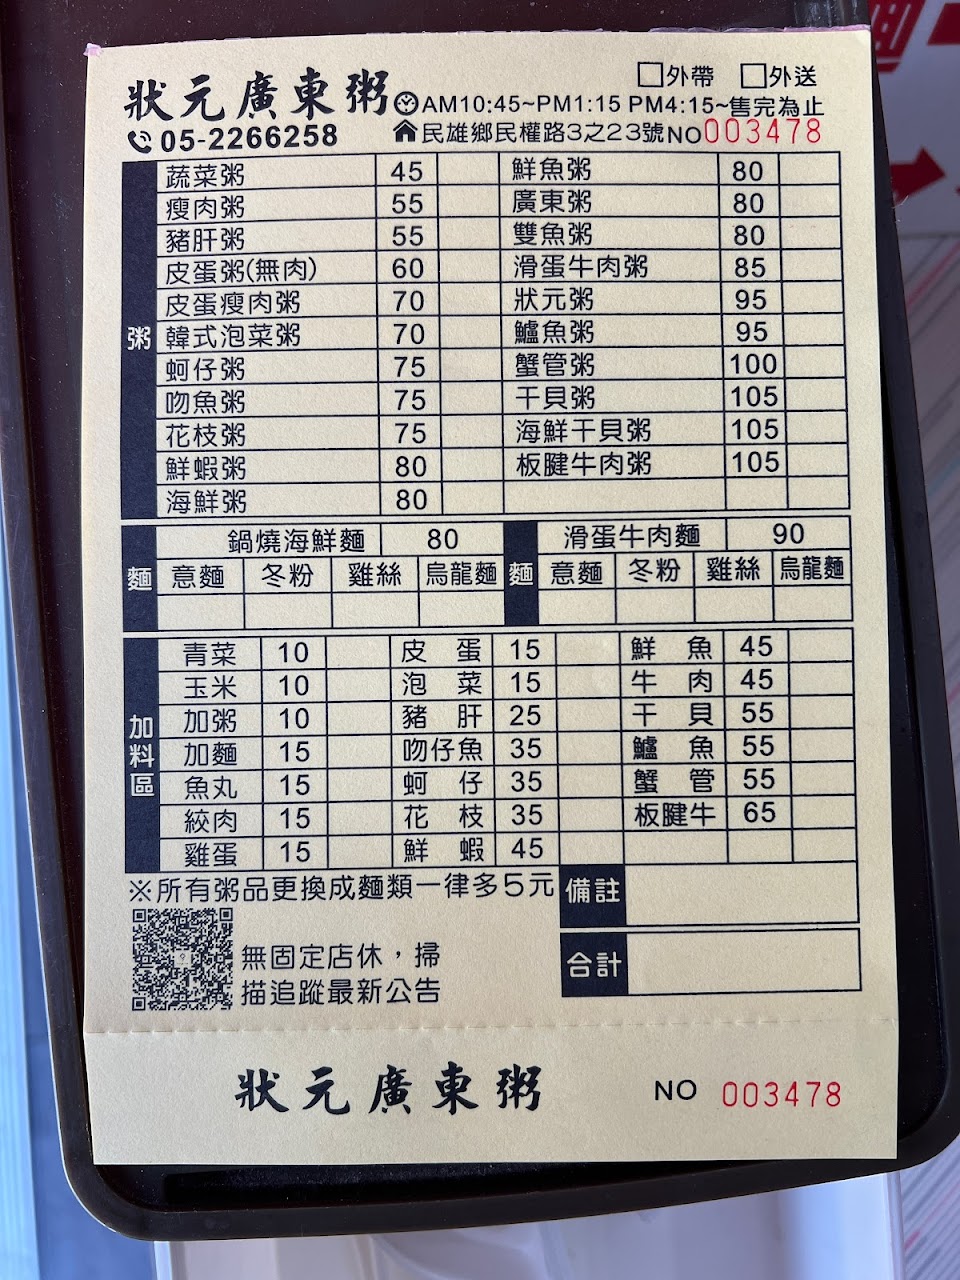 狀元廣東粥
□外帶 □外送
AM10:45~PM1:15 PM4:15~售完為止
05-2266258
民雄鄉民權路3之23號 NO003478
粥
蔬菜粥 45 鮮魚粥 80
瘦肉粥 55 廣東粥 80
豬肝粥 55 雙魚粥 80
皮蛋粥(無肉) 60 滑蛋牛肉粥 85
皮蛋瘦肉粥 70 狀元粥 95
韓式泡菜粥 70 鱸魚粥 95
蚵仔粥 75 蟹管粥 100
吻魚粥 75 干貝粥 105
花枝粥 75 海鮮干貝粥 105
鮮蝦粥 80 板腱牛肉粥 105
海鮮粥 80
麵 鍋燒海鮮麵 80 麵 滑蛋牛肉麵 90
意麵 冬粉 雞絲 烏龍麵 意麵 冬粉 雞絲 烏龍麵
加料區
青菜 10 皮蛋 15 鮮魚 45
玉米 10 泡菜 15 牛肉 45
加粥 10 豬肝 25 干貝 55
加麵 15 吻仔魚 35 鱸魚 55
魚丸 15 蚵仔 35 蟹管 55
絞肉 15 花枝 35 板腱牛 65
雞蛋 15 鮮蝦 45
※所有粥品更換成麵類一律多5元
備註
無固定店休，掃
描追蹤最新公告
合計
狀元廣東粥 NO 003478